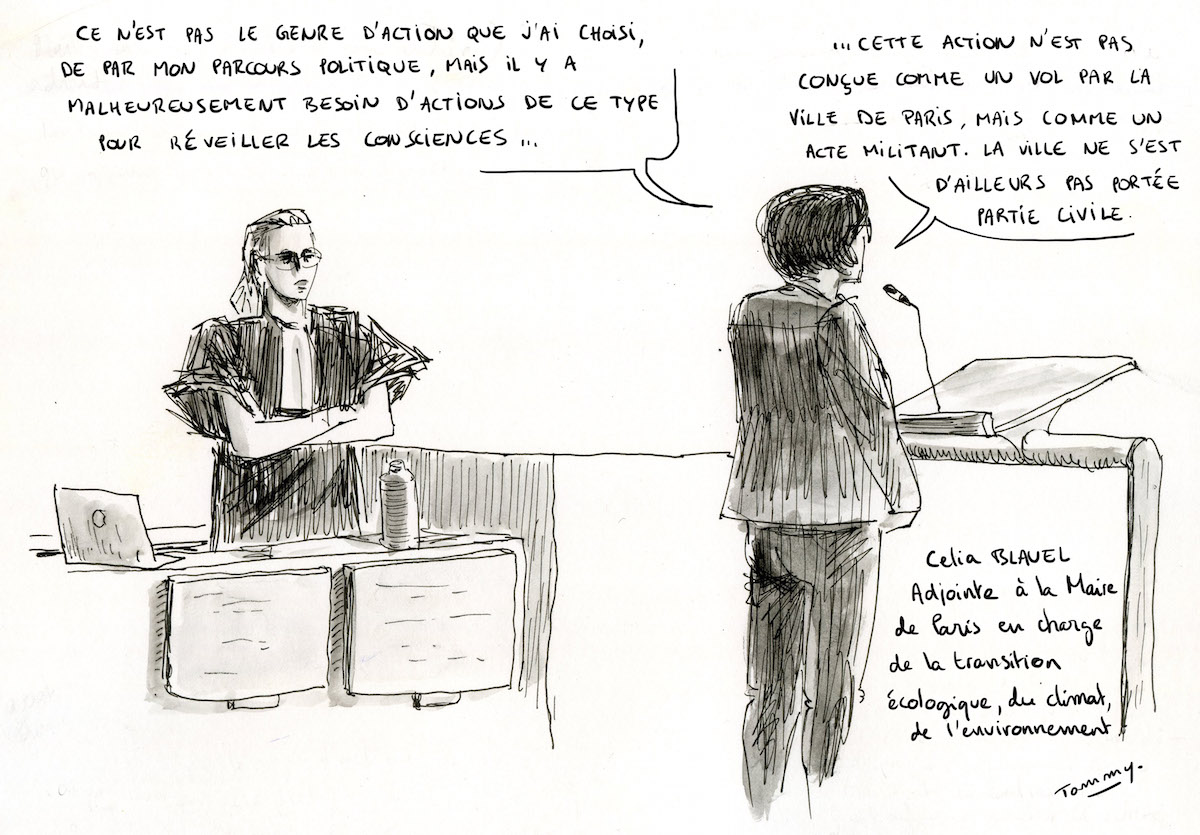 CE N'EST PAS LE GENRE D'ACTION QUE J'AI CHOISI,
DE PAR MON PARCOURS POLITIQUE, MAIS IL Y A
MALHEUREUSEMENT BESOIN D'ACTIONS DE CE TYPE
POUR RÉVEILLER LES CONSCIENCES...
...CETTE ACTION N'EST PAS
CONÇUE COMME UN VOL PAR LA
VILLE DE PARIS, MAIS COMME UN
ACTE MILITANT. LA VILLE NE S'EST
D'AILLEURS PAS PORTÉE
PARTIE CIVILE.
Celia BLAUEL
Adjointe à la Maire
de Paris en charge
de la transition
écologique, du climat,
de l'environnement
Tommy.